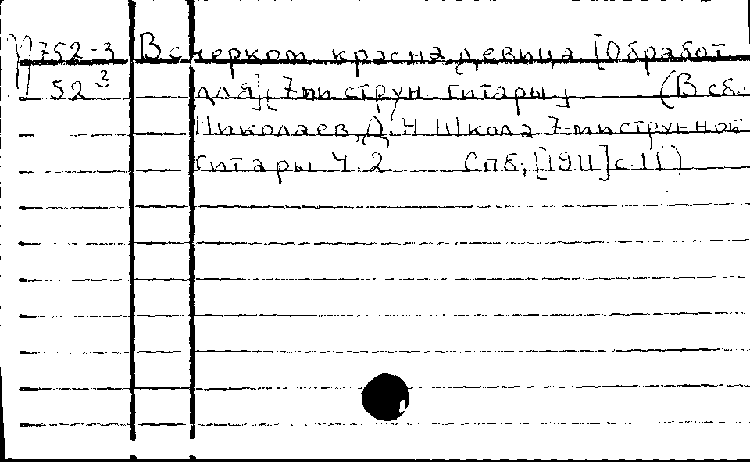 П752-3 Вечерком красна девица [Обработ.
52² для] 7ми струн. гитары, (В сб.
Николаев, Д. Н. Школа 7-миструнной
гитары Ч. 2 Спб, [1911] с. 11)